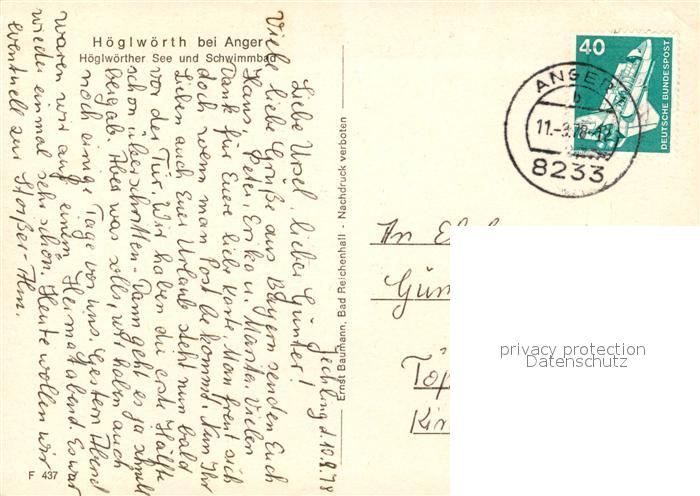 Höglwörth bei Anger
Höglwörther See und Schwimmbad
Jechling d. 10.8.78
Liebe Ursel, lieber Günter!
Viele liebe Grüße aus Bayern senden Euch
Hans, Peter, Erika u. Martin. Vielen
Dank für Eure liebe Karte. Man freut sich
doch wenn man Post bekommt. Nun Ihr
Lieben auch Euer Urlaub steht nun bald
vor der Tür. Wir haben die erste Hälfte
schon überschritten. Dann geht es ja schnell
bergab. Aber was solls, wir haben auch
noch einige Tage vor uns. Gestern Abend
waren wir auf einem Heimatabend. Es war
wieder einmal sehr schön. Heute wollen wir
eventuell zur Stoißer-Alm.
F 437
Ernst Baumann, Bad Reichenhall - Nachdruck verboten
40
DEUTSCHE BUNDESPOST
ANGER
b
8233
An
privacy protection
Datenschutz